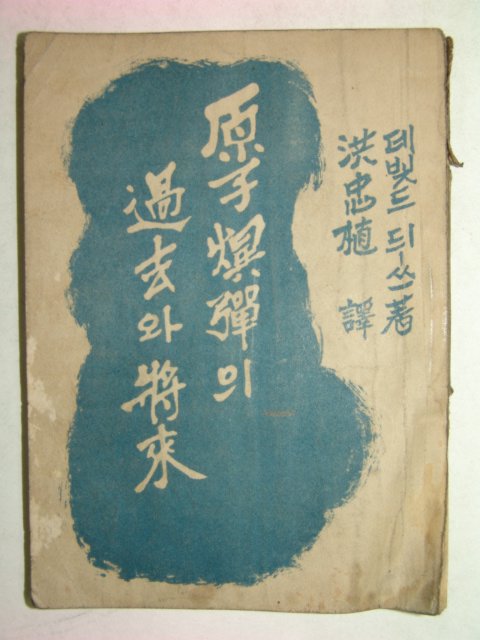 데빗드 듸ᅳ쓰 著
洪忠植 譯
原子爆彈의
過去와 將來